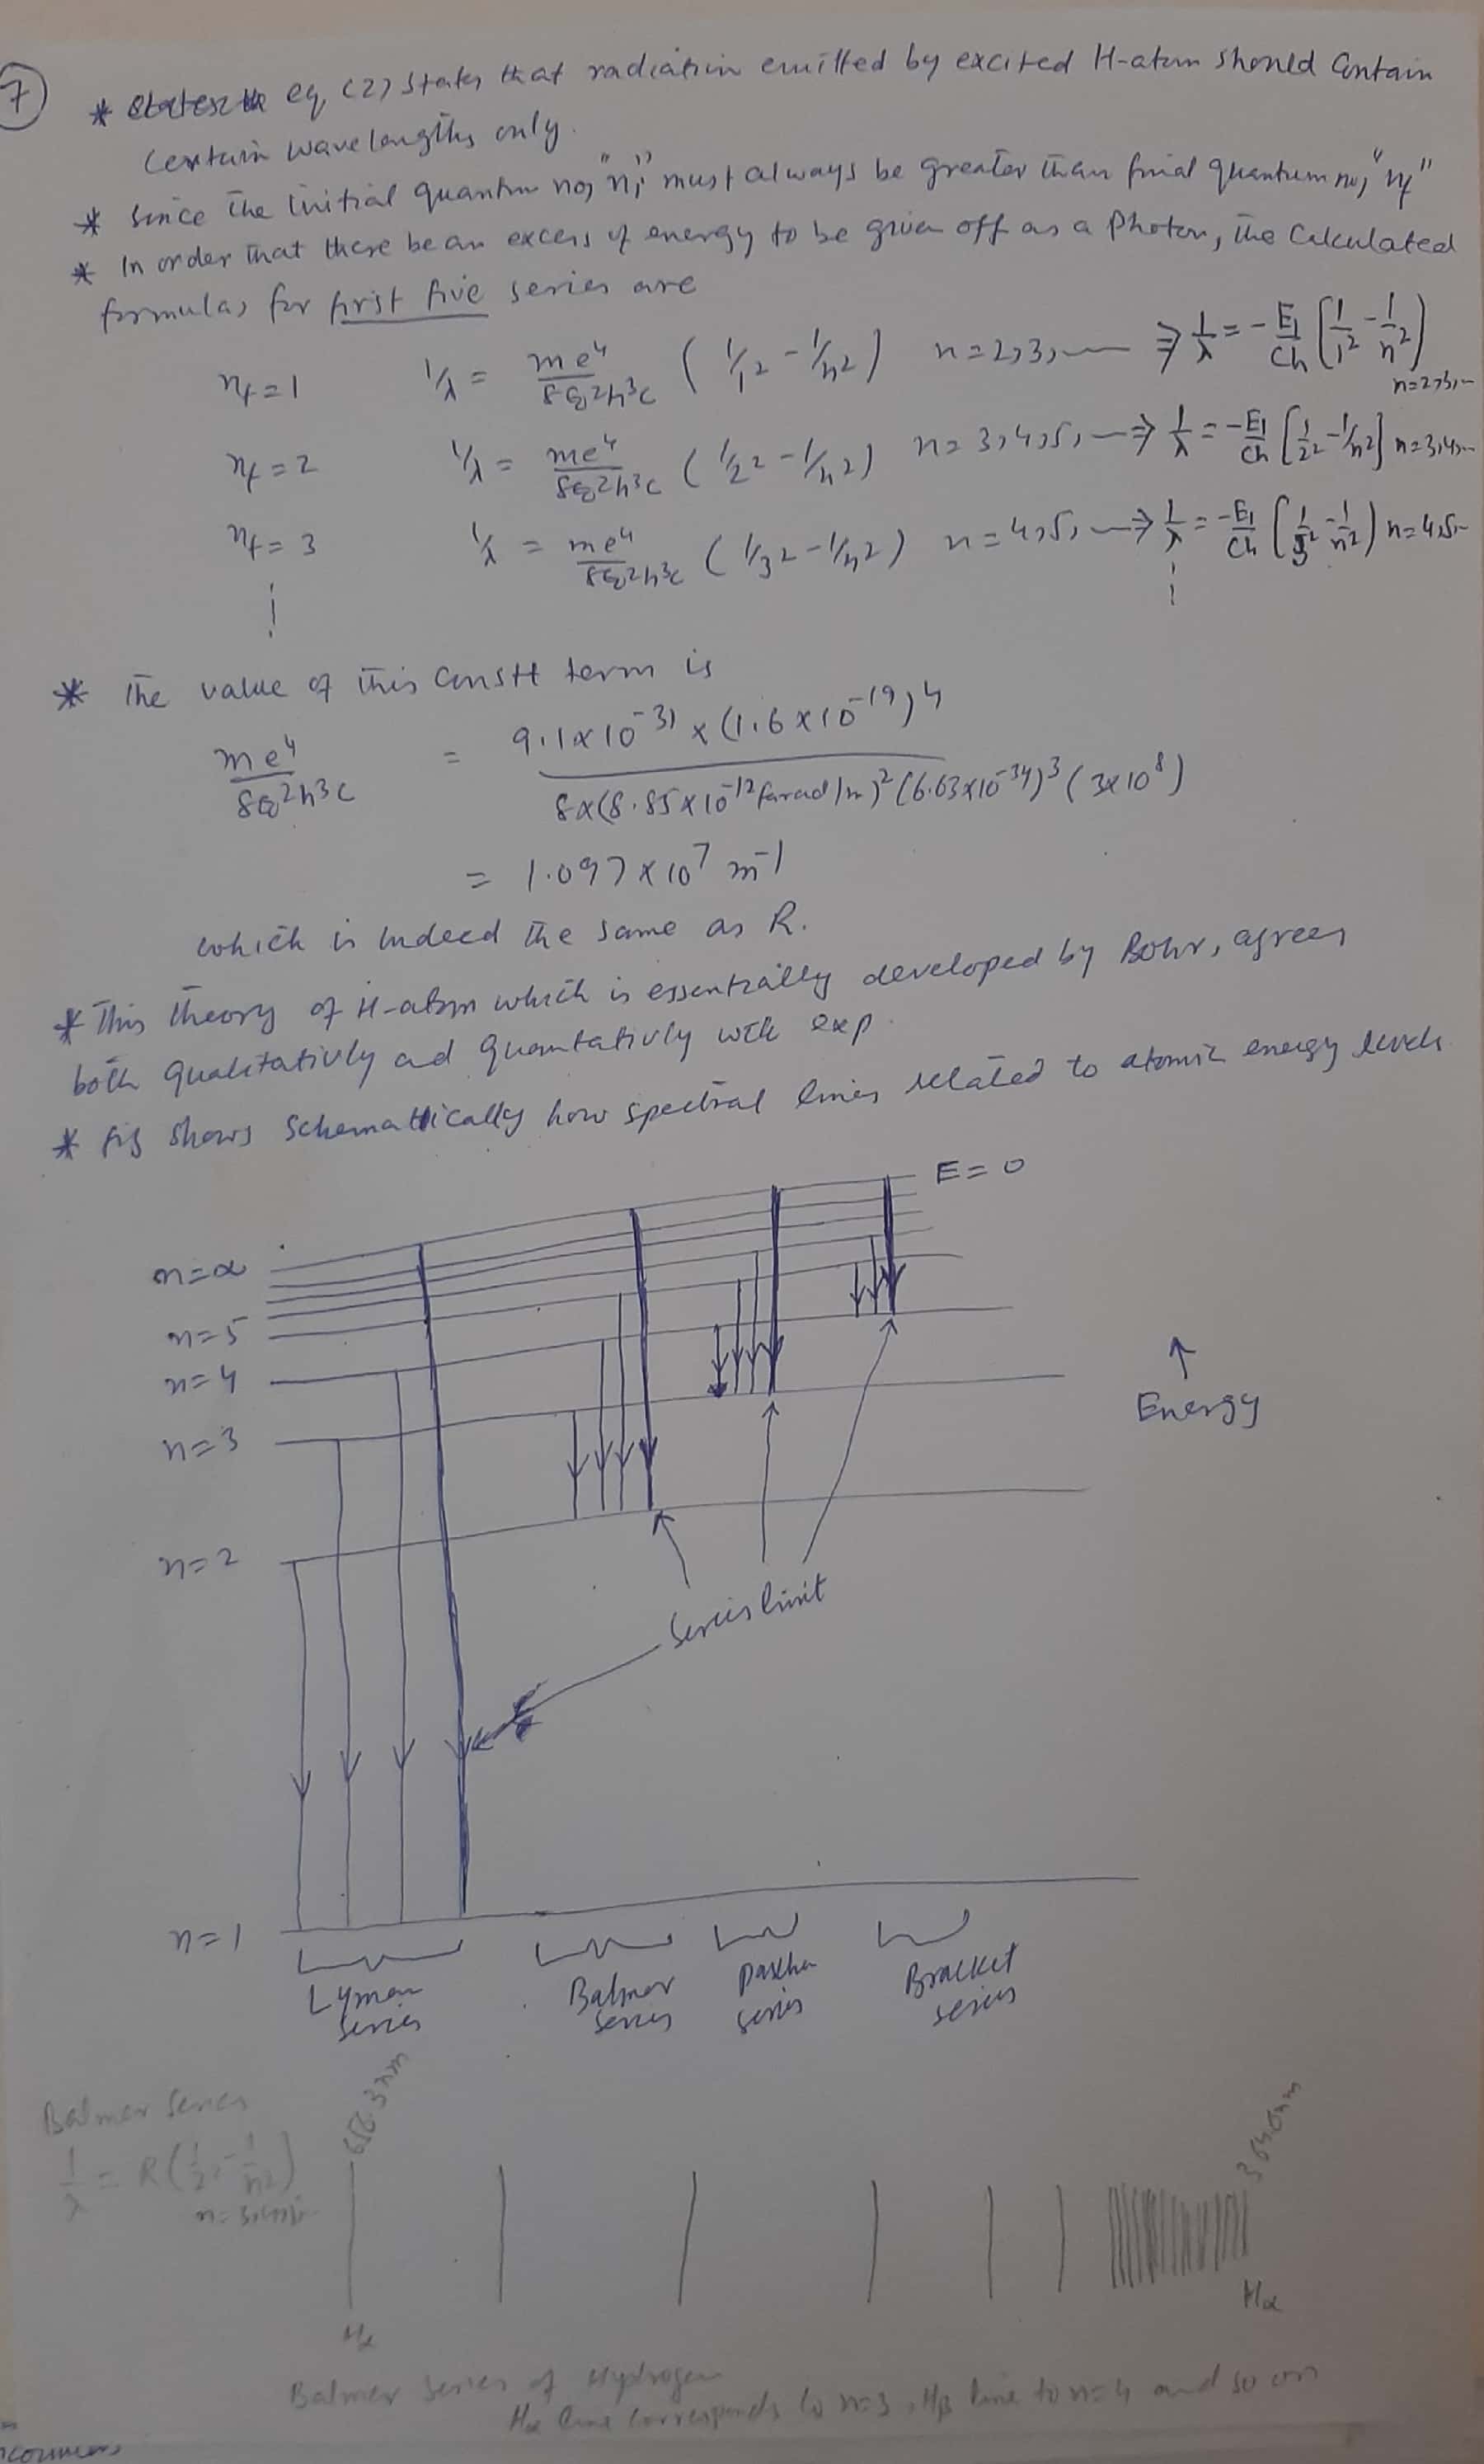 7
* eq (2) states that radiation emitted by excited H-atom should contain
certain wavelengths only.
* Since the initial quantum no, "ni" must always be greater than final quantum no, "nf"
* In order that there be an excess of energy to be given off as a Photon, the calculated
formulas for first five series are
nf=1 1/λ = me⁴/8ε₀²h³c (1/1² - 1/n²) n=2,3, ⇒ 1/λ = -E₁/ch [1/1² - 1/n²] n=2,3,
nf=2 1/λ = me⁴/8ε₀²h³c (1/2² - 1/n²) n=3,4,5, ⇒ 1/λ = -E₁/ch [1/2² - 1/n²] n=3,4,
nf=3 1/λ = me⁴/8ε₀²h³c (1/3² - 1/n²) n=4,5, ⇒ 1/λ = -E₁/ch (1/3² - 1/n²) n=4,5
* The value of this constt term is
me⁴/8ε₀²h³c = 9.1x10⁻³¹ x (1.6x10⁻¹⁹)⁴ / 8x(8.85x10⁻¹² farad/m)² (6.63x10⁻³⁴)³ (3x10⁸)
= 1.097x10⁷ m⁻¹
which is indeed the same as R.
* This theory of H-atom which is essentially developed by Bohr, agrees
both qualitativly and quantativly with exp.
* fig shows schemattically how spectral lines related to atomic energy levels
E=0
n=α
n=5
n=4
n=3
Energy
n=2
Series limit
n=1
Lyman series
Balmer series
Paschen series
Bracket series
Balmer Series
1/λ = R(1/2² - 1/n²)
656.3nm
364.6nm
Hα
Hα
Balmer Series of Hydrogen
Hα line corresponds to n=3, Hβ line to n=4 and so on